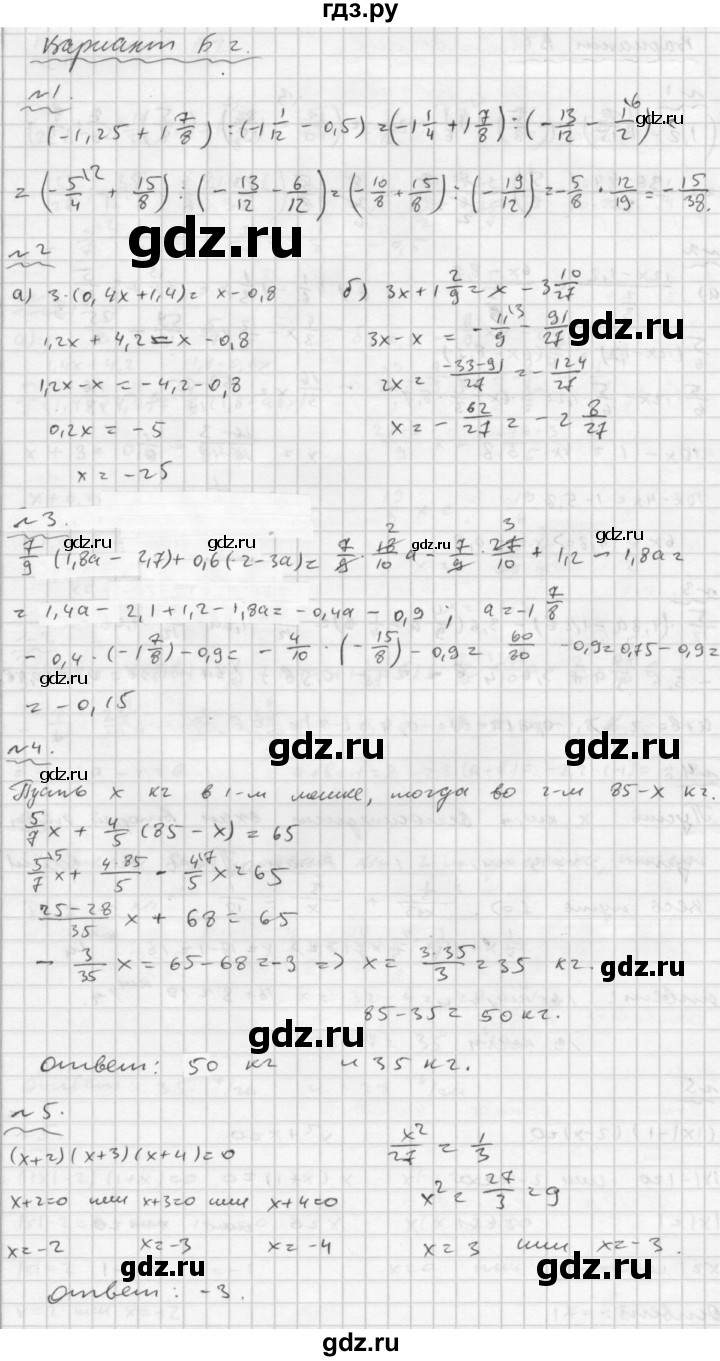 гдз.ру
Вариант Б 2.
№1.
(-1,25 + 1 7/8) : (-1 1/12 - 0,5) = (-1 1/4 + 1 7/8) : (-13/12 - 1/2 \6)
= (-5/4 \2 + 15/8) : (-13/12 - 6/12) = (-10/8 + 15/8) : (-19/12) = -5/8 · 12/19 = -15/38.
№2
gdz.ru gdz.ru
а) 3·(0,4x+1,4) = x-0,8 б) 3x+1 2/9 = x - 3 10/27
gdz.ru
1,2x + 4,2 = x - 0,8 3x-x = -11/9 \3 - 91/27
1,2x-x = -4,2-0,8 2x = (-33-91)/27 = -124/27
gdz.ru
0,2x = -5 x = -62/27 = -2 8/27
x = -25
№3.
gdz.ru gdz.ru gdz.ru gdz.ru
7/9 (1,8a - 2,7) + 0,6(-2-3a) = 7/9 · 18/10 a - 7/9 · 27/10 + 1,2 - 1,8a =
= 1,4a - 2,1 + 1,2 - 1,8a = -0,4a - 0,9; a = -1 7/8
gdz.ru gdz.ru gdz.ru
-0,4 · (-1 7/8) - 0,9 = -4/10 · (-15/8) - 0,9 = 60/80 - 0,9 = 0,75 - 0,9 =
= -0,15
№4.
gdz.ru gdz.ru
gdz.ru
Пусть x кг в 1-м мешке, тогда во 2-м 85-x кг.
5/7 x + 4/5 (85-x) = 65
5/7 \5 x + 4·85/5 - 4/5 \7 x = 65
(25-28)/35 x + 68 = 65
-3/35 x = 65-68 = -3 => x = 3·35/3 = 35 кг.
gdz.ru
85-35 = 50 кг.
gdz.ru
Ответ: 50 кг и 35 кг.
№5.
gdz.ru gdz.ru
(x+2)(x+3)(x+4)=0 x²/27 = 1/3
x+2=0 или x+3=0 или x+4=0 x² = 27/3 = 9
x=-2 x=-3 x=-4 x=3 или x=-3.
gdz.ru gdz.ru
Ответ: -3.
gdz.ru